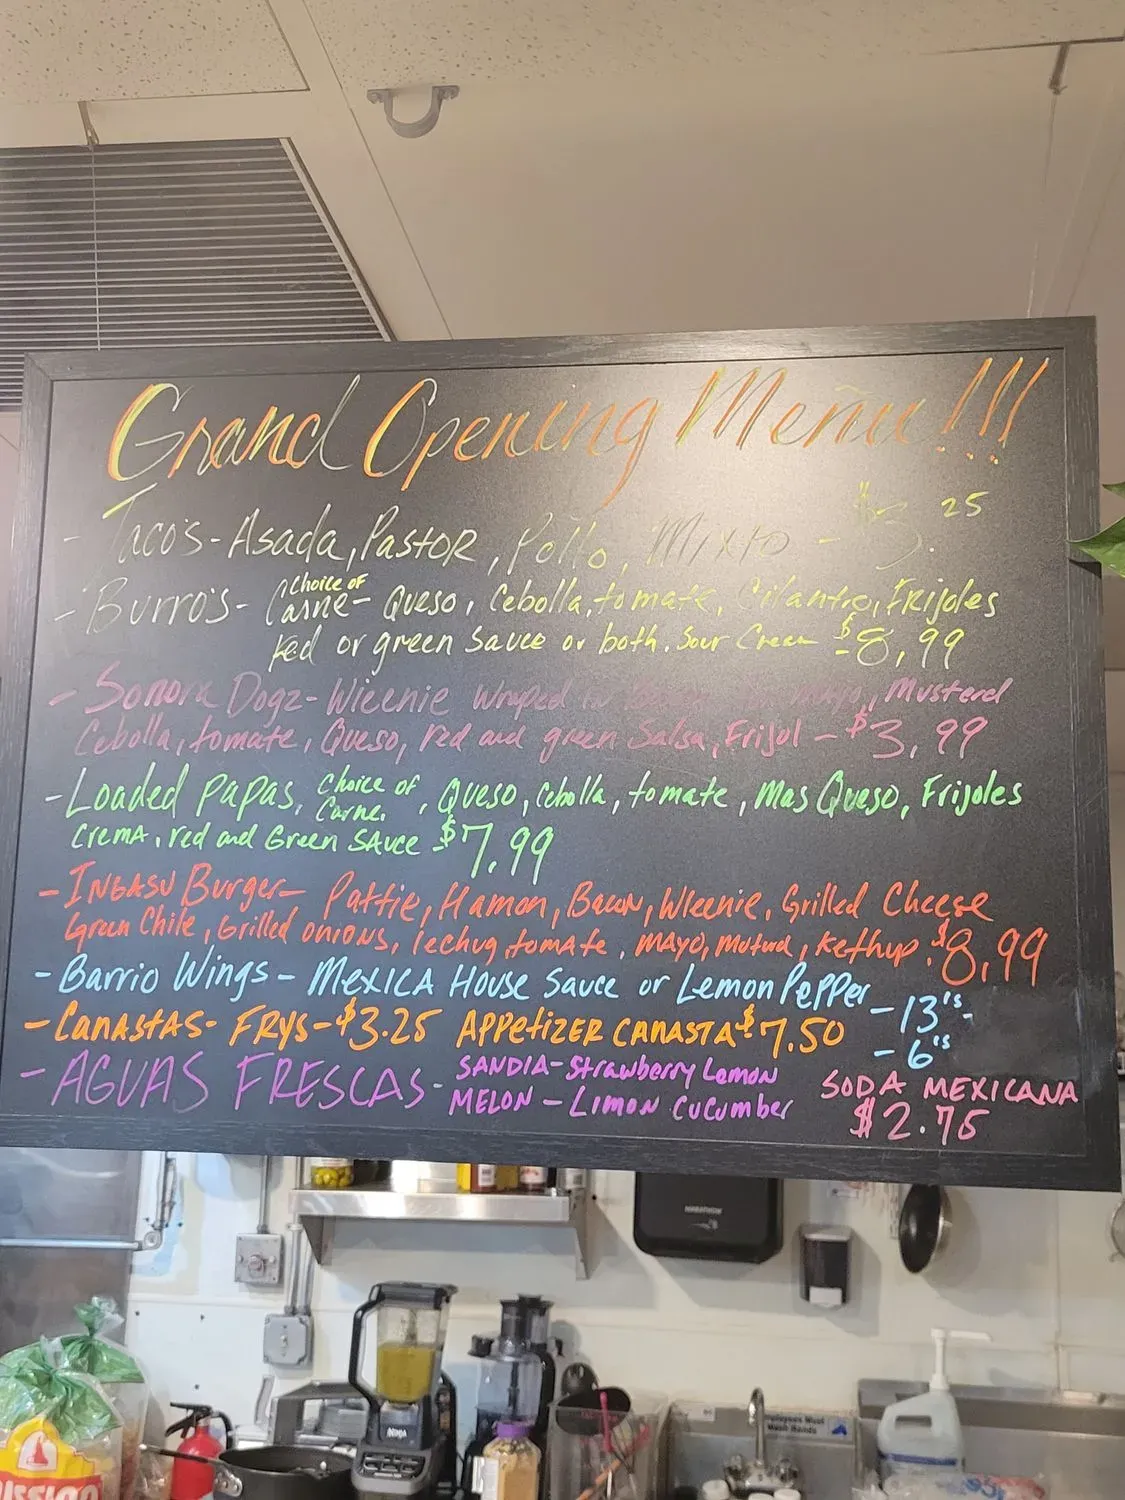 Grand Opening Meñu!!!
- Taco's - Asada, Pastor, Pollo, Mixto - $3.25
- Burro's - Choice of Carne - Queso, Cebolla, tomate, Cilantro, Frijoles
Red or green Sauce or both. Sour Cream - $8,99
- Sonora Dogz - Wieenie Wraped in Mayo, Musterd
Cebolla, tomate, Queso, red and green Salsa, Frijol - $3,99
- Loaded Papas, Choice of Carne, Queso, Cebolla, tomate, Mas Queso, Frijoles
Crema, red and Green Sauce - $7.99
- Ingasu Burger - Pattie, Hamon, Bacon, Wieenie, Grilled Cheese
Green Chile, Grilled onions, lechug, tomate, Mayo, Muturd, Kethup. $8,99
- Barrio Wings - Mexica House Sauce or Lemon Pepper - 13's -
- 6's
- Canastas - Frys - $3.25 Appetizer Canasta $7.50
- AGUAS FRESCAS - SANDIA - Strawberry Lemon
MELON - Limon Cucumber
SODA MEXICANA
$2.75
MARATHON
NINJA
Employees Must
Wash Hands
MISSION